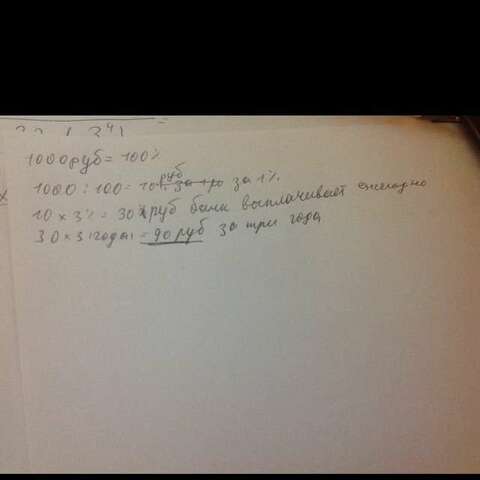 1000 руб = 100%
1000 : 100 = 10 руб за 1%
10 x 3% = 30 руб банк выплачивает ежегодно
30 x 3 года = 90 руб за три года